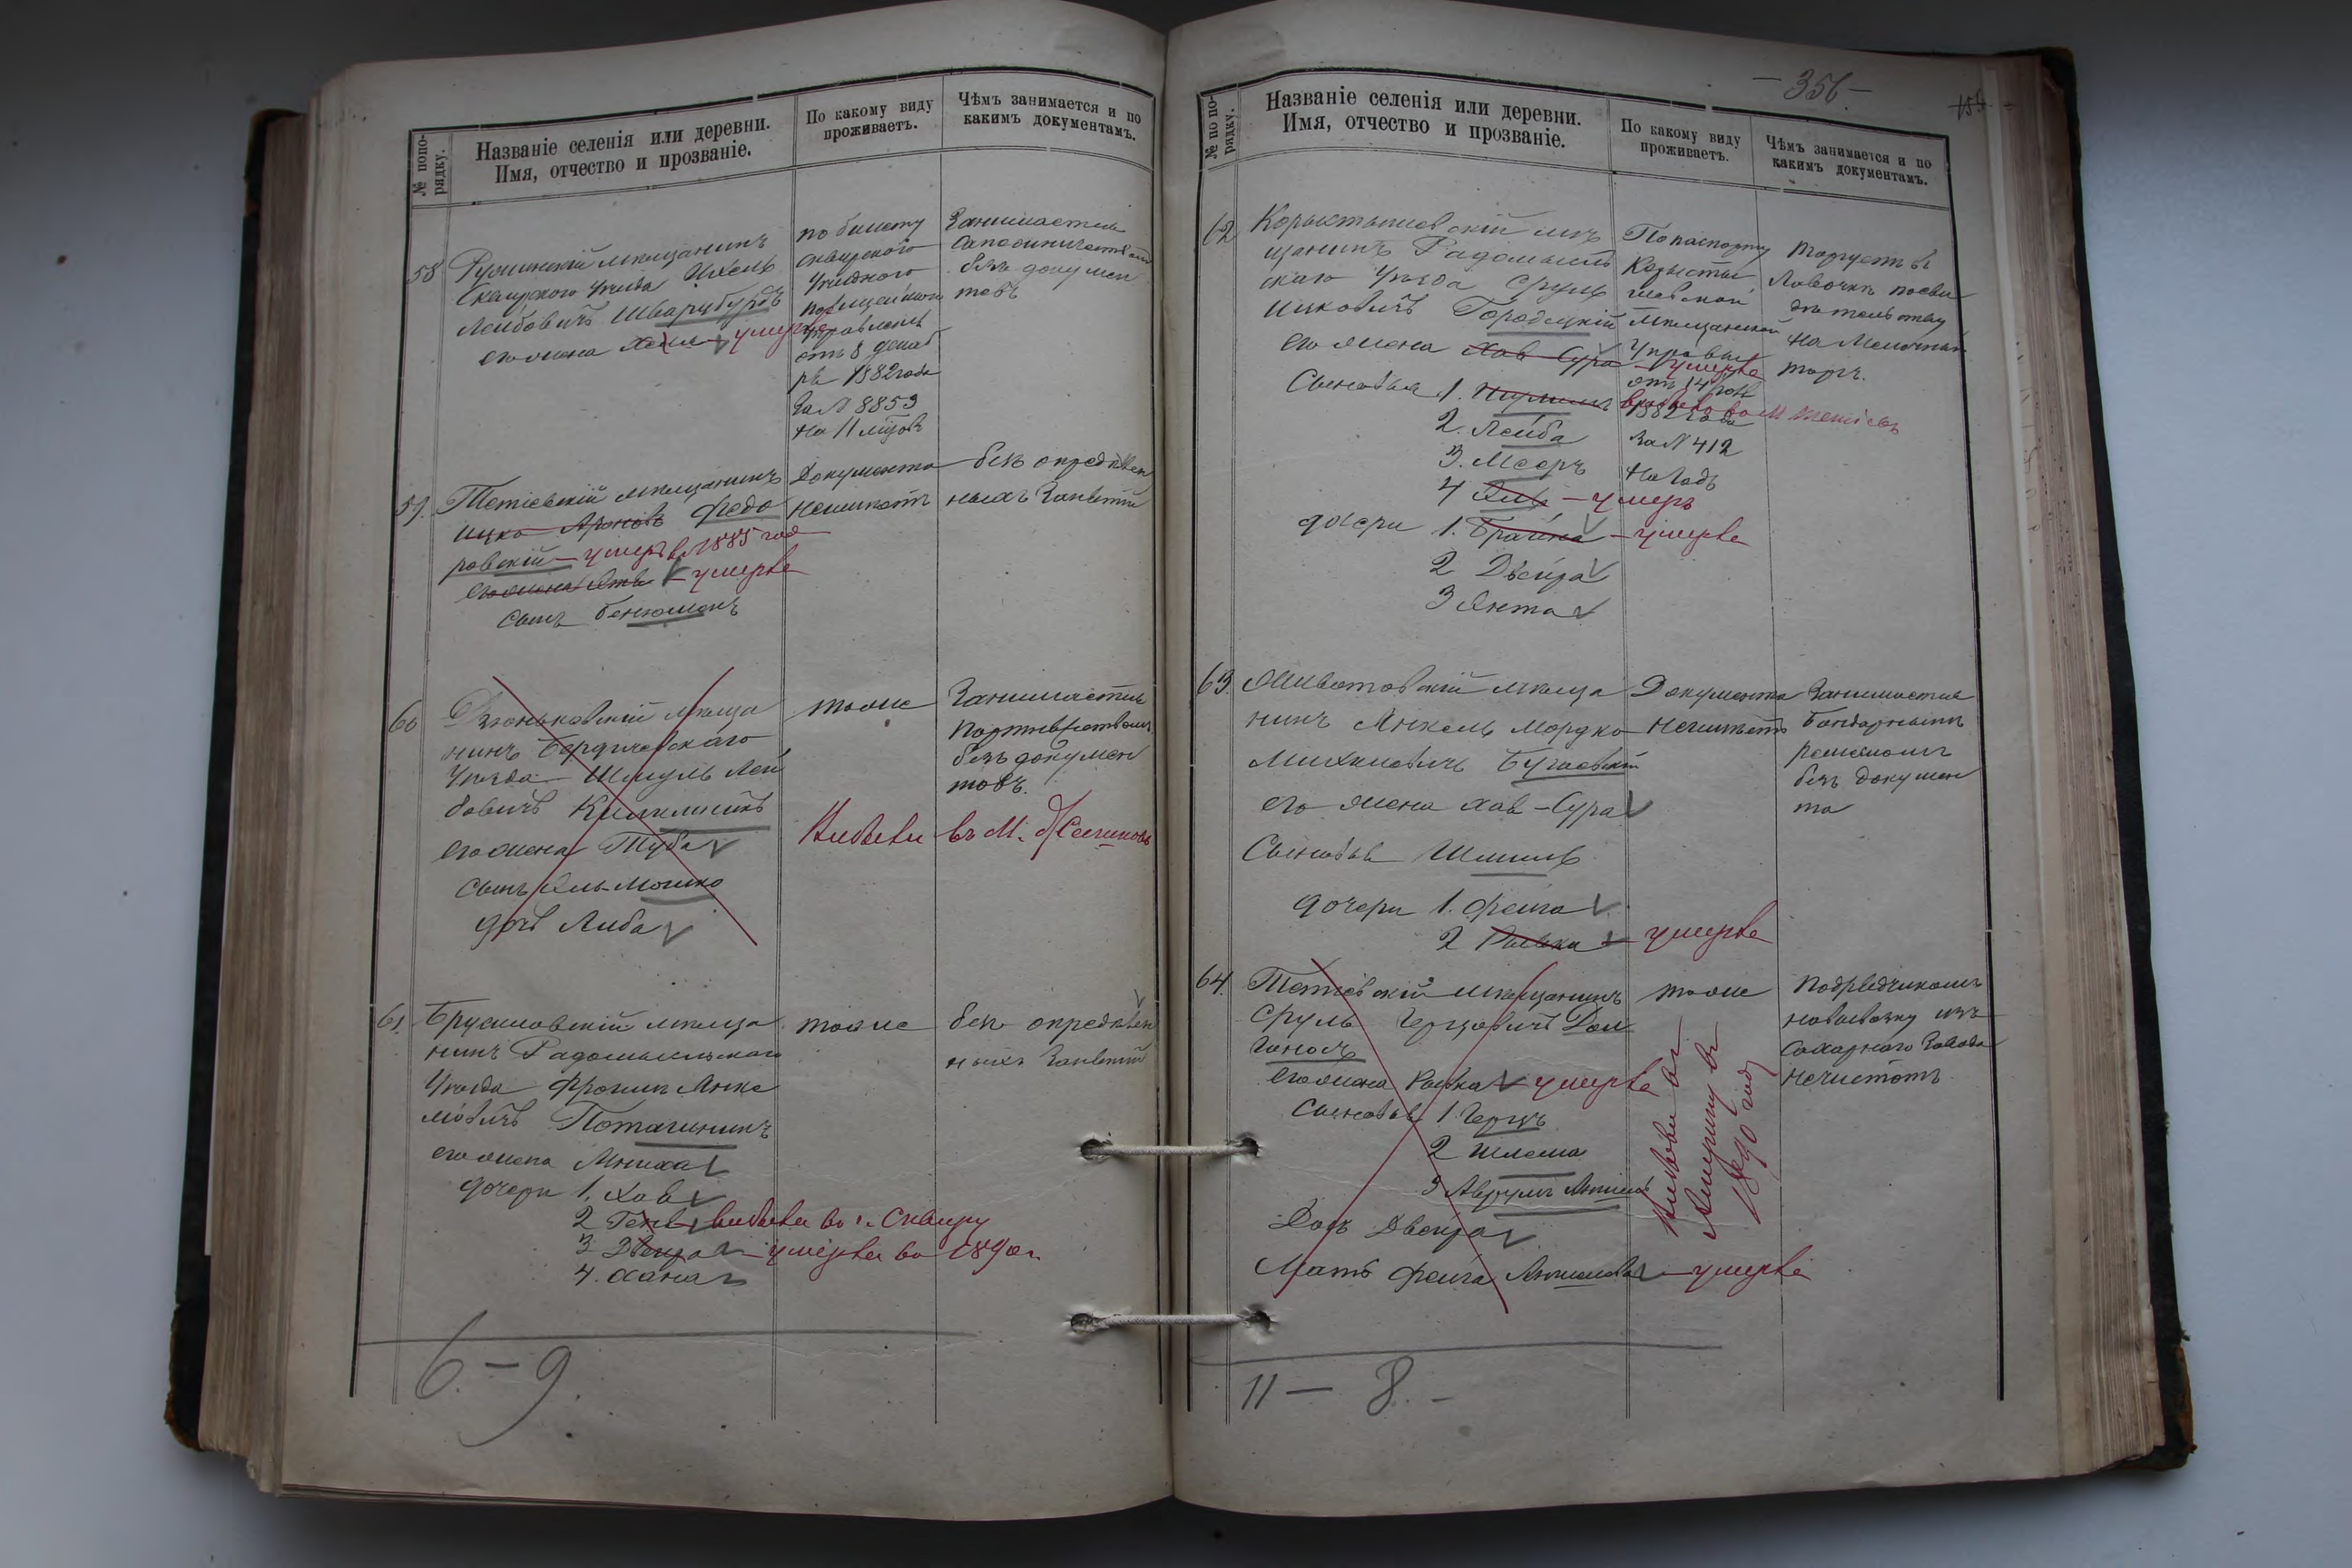 № по по-
рядку.
Названіе селенія или деревни.
Имя, отчество и прозваніе.
По какому виду
проживаетъ.
Чѣмъ занимается и по
какимъ документамъ.
58 Ружинскій мѣщанинъ
Сквирскаго Уѣзда Ихель
Лейбовичъ Шварцбурдъ
его жена умерла
по билету
сквирского
Уѣздного
полицейскаго
Управленія
отъ 8 декаб
ря 1882 года
за № 8853
на 11 мѣсяцовъ
Занимается
сапожничествомъ
безъ докумен
товъ
59. Тетіевскій мѣщанинъ
Ицко Ароновъ Федо
ровскій – умеръ в 1885 год
его жена – умерла
сынъ Бенюменъ
Документа
неимѣетъ
безъ опредѣлен
ныхъ занятій
60 Дзюньковскій мѣща
нинъ Бердичевскаго
Уѣзда Шмуль Лей
бовичъ
его жена Туба
сынъ Эль-Мошко
дочь Либа
тоже
Занимается
Портняжествомъ
безъ докумен
товъ.
Выбыли въ М.
61. Брусиловскій мѣща
нинъ Радомысльскаго
Уѣзда Фроимъ Янке
лёвичъ Поташникъ
его жена Мниха
дочери 1. Хая
2 Геня – выбыла въ г. Сквиру
3 Двейра – умерла въ 1890 г.
4. Хана
тоже
безъ опредѣлен
ныхъ занятій
6 – 9.
– 356 –
№ по по-
рядку.
Названіе селенія или деревни.
Имя, отчество и прозваніе.
По какому виду
проживаетъ.
Чѣмъ занимается и по
какимъ документамъ.
62 Коростышевскій мѣ
щанинъ Радомысль
скаго Уѣзда Сруль
Ицковичъ Городецкій
его жена Хая-Сура – умерла
Сыновья 1.
2. Лейба
3. Мееръ
4 – умеръ
дочери 1. Брайна – умерла
2 Двейра
3 Якта
По паспорту
Коросты
шевской
Мѣщанской
Управы
отъ 14
1882 года
за № 412
на годъ
Торгуетъ въ
Лавочкѣ посви
дѣтельству
на Мелочный
торгъ.
63. Животовскій мѣща
нинъ Янкель Мордко
Михилевичъ Бугаевскій
его жена Хая-Сура
Сыновья Шмиль
дочери 1. Фейга
2 – умерла
Документа
неимѣетъ
Занимается
Бондарнымъ
ремесломъ
безъ докумен
та
64. Тетіевскій мѣщанинъ
Сруль Герцовичъ Дол
гоносъ
его жена Рывка – умерла
Сыновья 1. Герцъ
2 Шлема
3 Аврумъ
Дочь Двейра
Мать Фейга – умерла
тоже
Подрядчикомъ
по вывозку изъ
сахарнаго завода
нечистотъ
Выбыли въ
Америку въ
1890 году
11 – 8. –